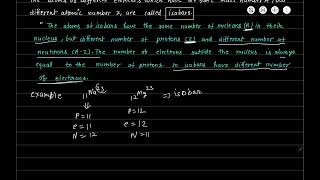 different atomic number Z, are called isobars.
• The atoms of isobars have the same number of nucleons (A) in their
nucleus, but different number of protons (Z) and different number of
neutrons (A-Z). The number of electrons outside the nucleus is always
equal to the number of protons. so isobars have different number
of electrons.
example 11Na23 12Mg23 ⇒ isobar
P = 11 P = 12
e = 11 e = 12
N = 12 N = 11